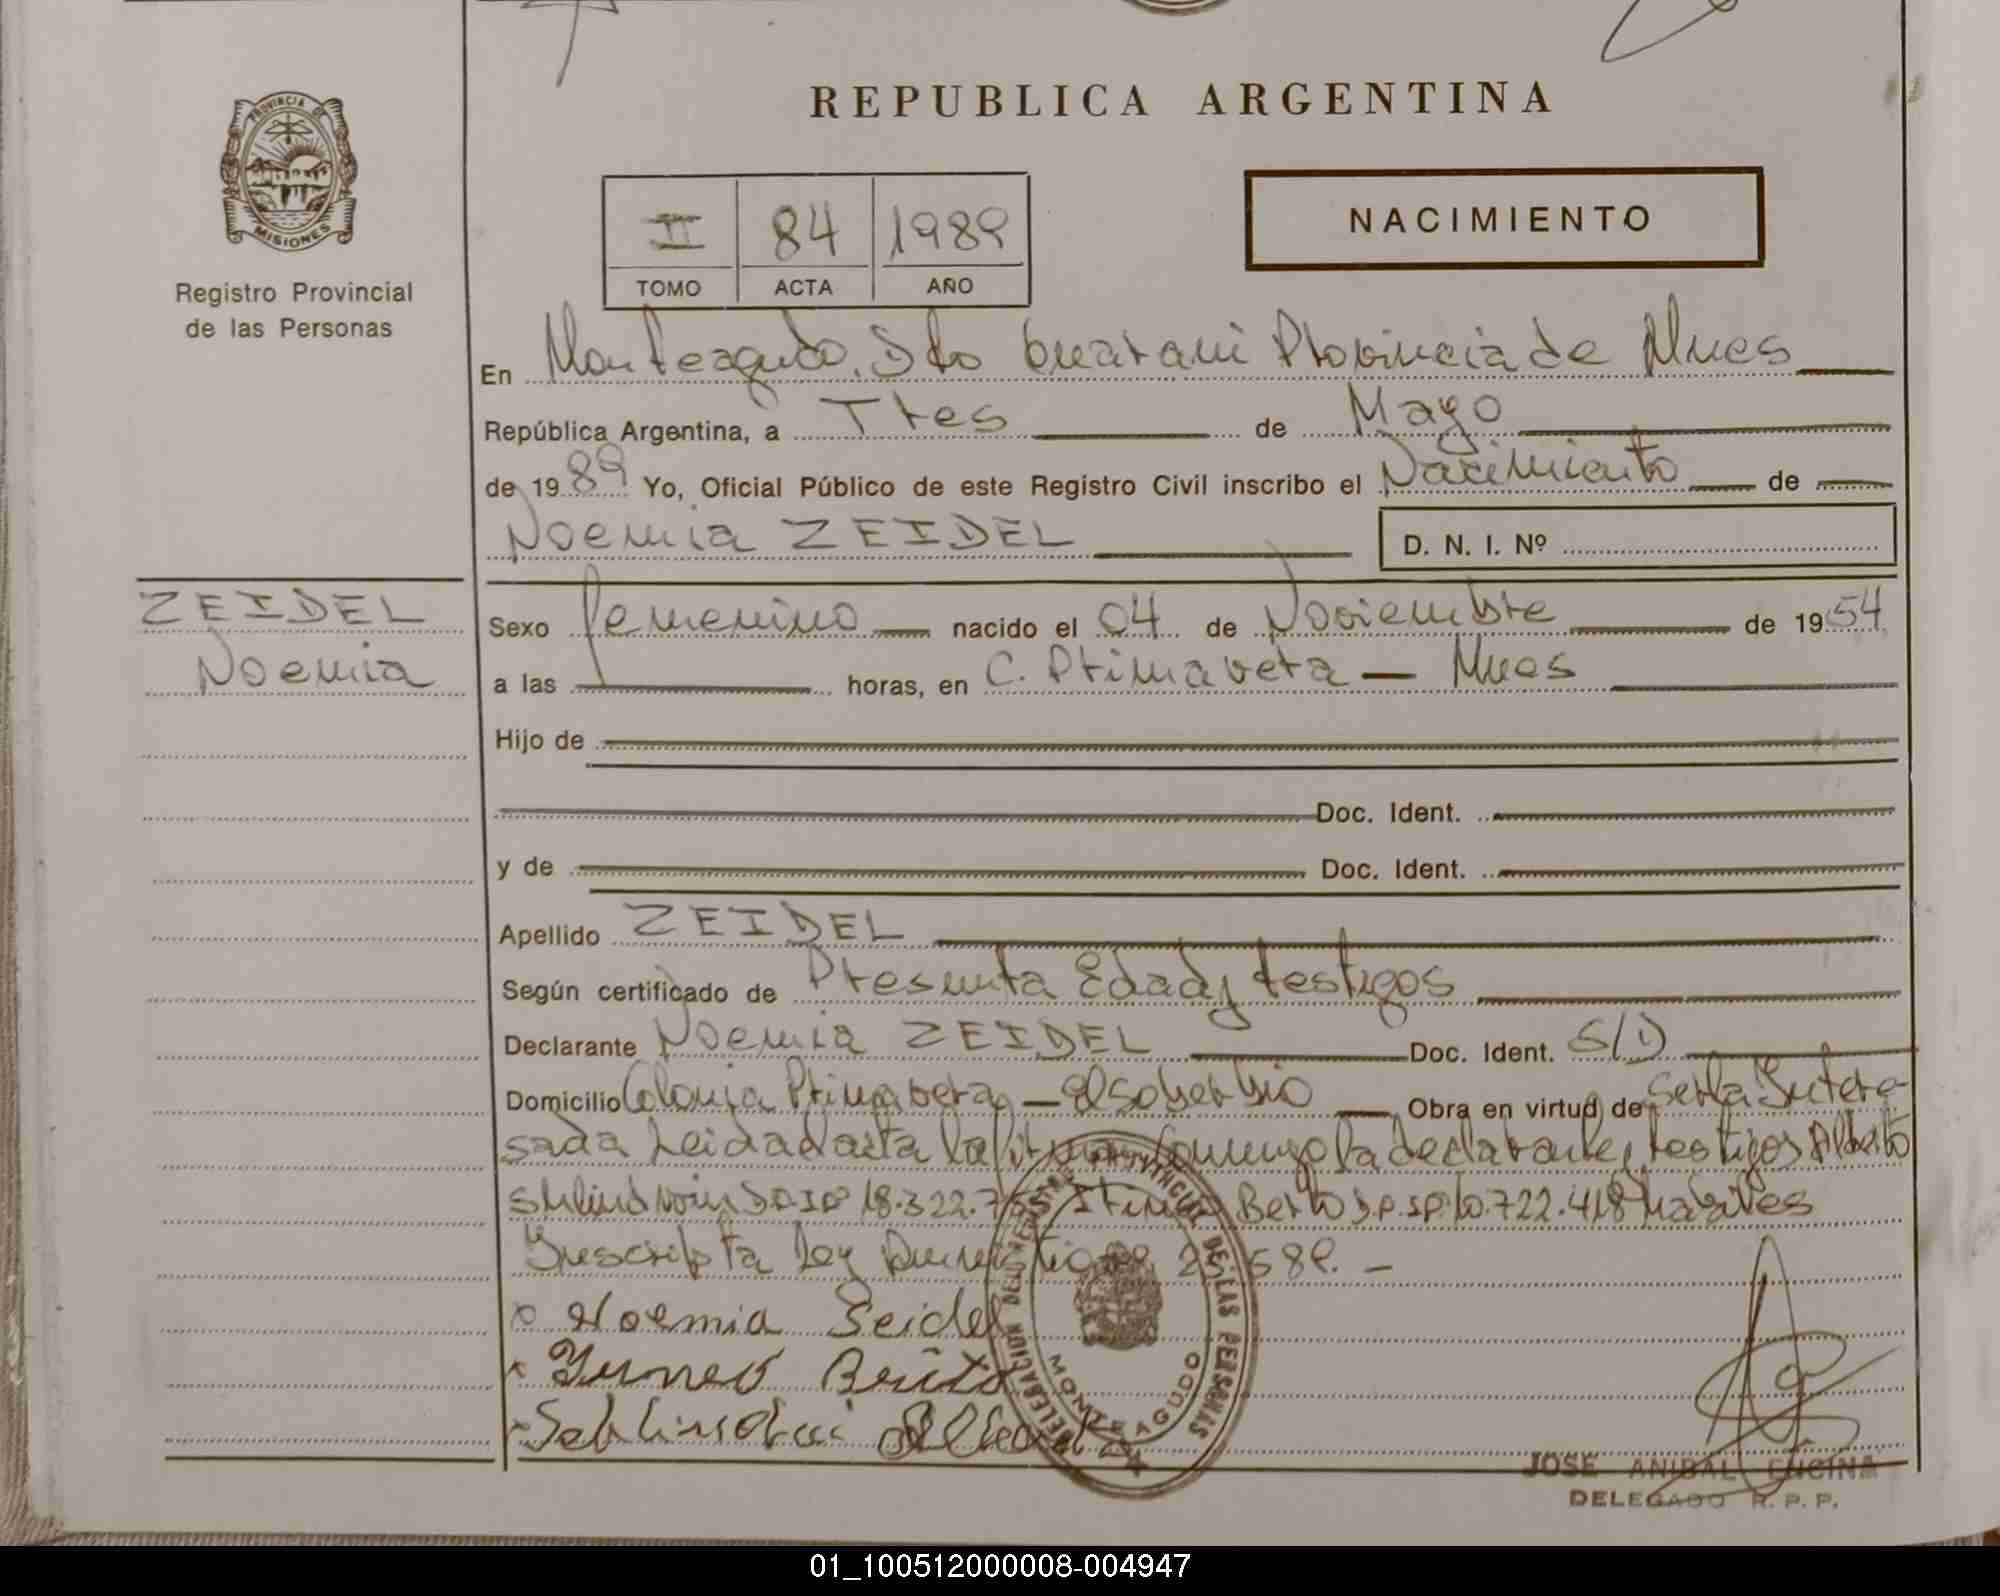 REPUBLICA ARGENTINA
PROVINCIA DE
MISIONES
Registro Provincial
de las Personas
II 84 1989
TOMO ACTA AÑO
NACIMIENTO
En Monteagudo. Dto Guarani Provincia de Mnes
República Argentina, a Tres de Mayo
de 1989 Yo, Oficial Público de este Registro Civil inscribo el Nacimiento de
Noemia ZEIDEL D. N. I. Nº
ZEIDEL
Noemia
Sexo femenino nacido el 04 de Noviembre de 1954
a las horas, en C. Primavera — Mnes
Hijo de
Doc. Ident.
y de Doc. Ident.
Apellido ZEIDEL
Según certificado de Presunta Edad y testigos
Declarante Noemia ZEIDEL Doc. Ident. S/D
Domicilio Colonia Primavera — El Soberbio Obra en virtud de Ser la Intere-
sada Leida el acta la firman conmigo la declarante, testigos Alberto
18.322.7 Brito 10.722.418
Inscripta Ley 23.589. —
x Noemia Seidel
x Brito
x
DELEGACION DEL REGISTRO PROVINCIAL DE LAS PERSONAS
MONTEAGUDO
JOSE ANIBAL ENCINA
DELEGADO R. P. P.
01_100512000008-004947